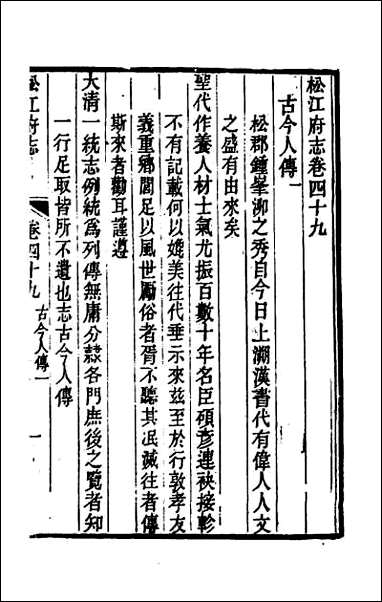 松江府志卷四十九
古今人傳一
松郡鍾峯泖之秀自今日上溯漢晉代有偉人人文
之盛有由來矣
聖代作養人材士氣尤振百數十年名臣碩彥連袂接軫
不有記載何以媲美往代垂示來茲至於行敦孝友
義重鄉閭足以風世勵俗者胥不聽其泯滅往者傳
斯來者勸耳謹遵
大清一統志例統爲列傳無庸分隸各門庶後之覽者知
一行足取皆所不遺也志古今人傳
松江府志
卷四十九 古今人傳一
一